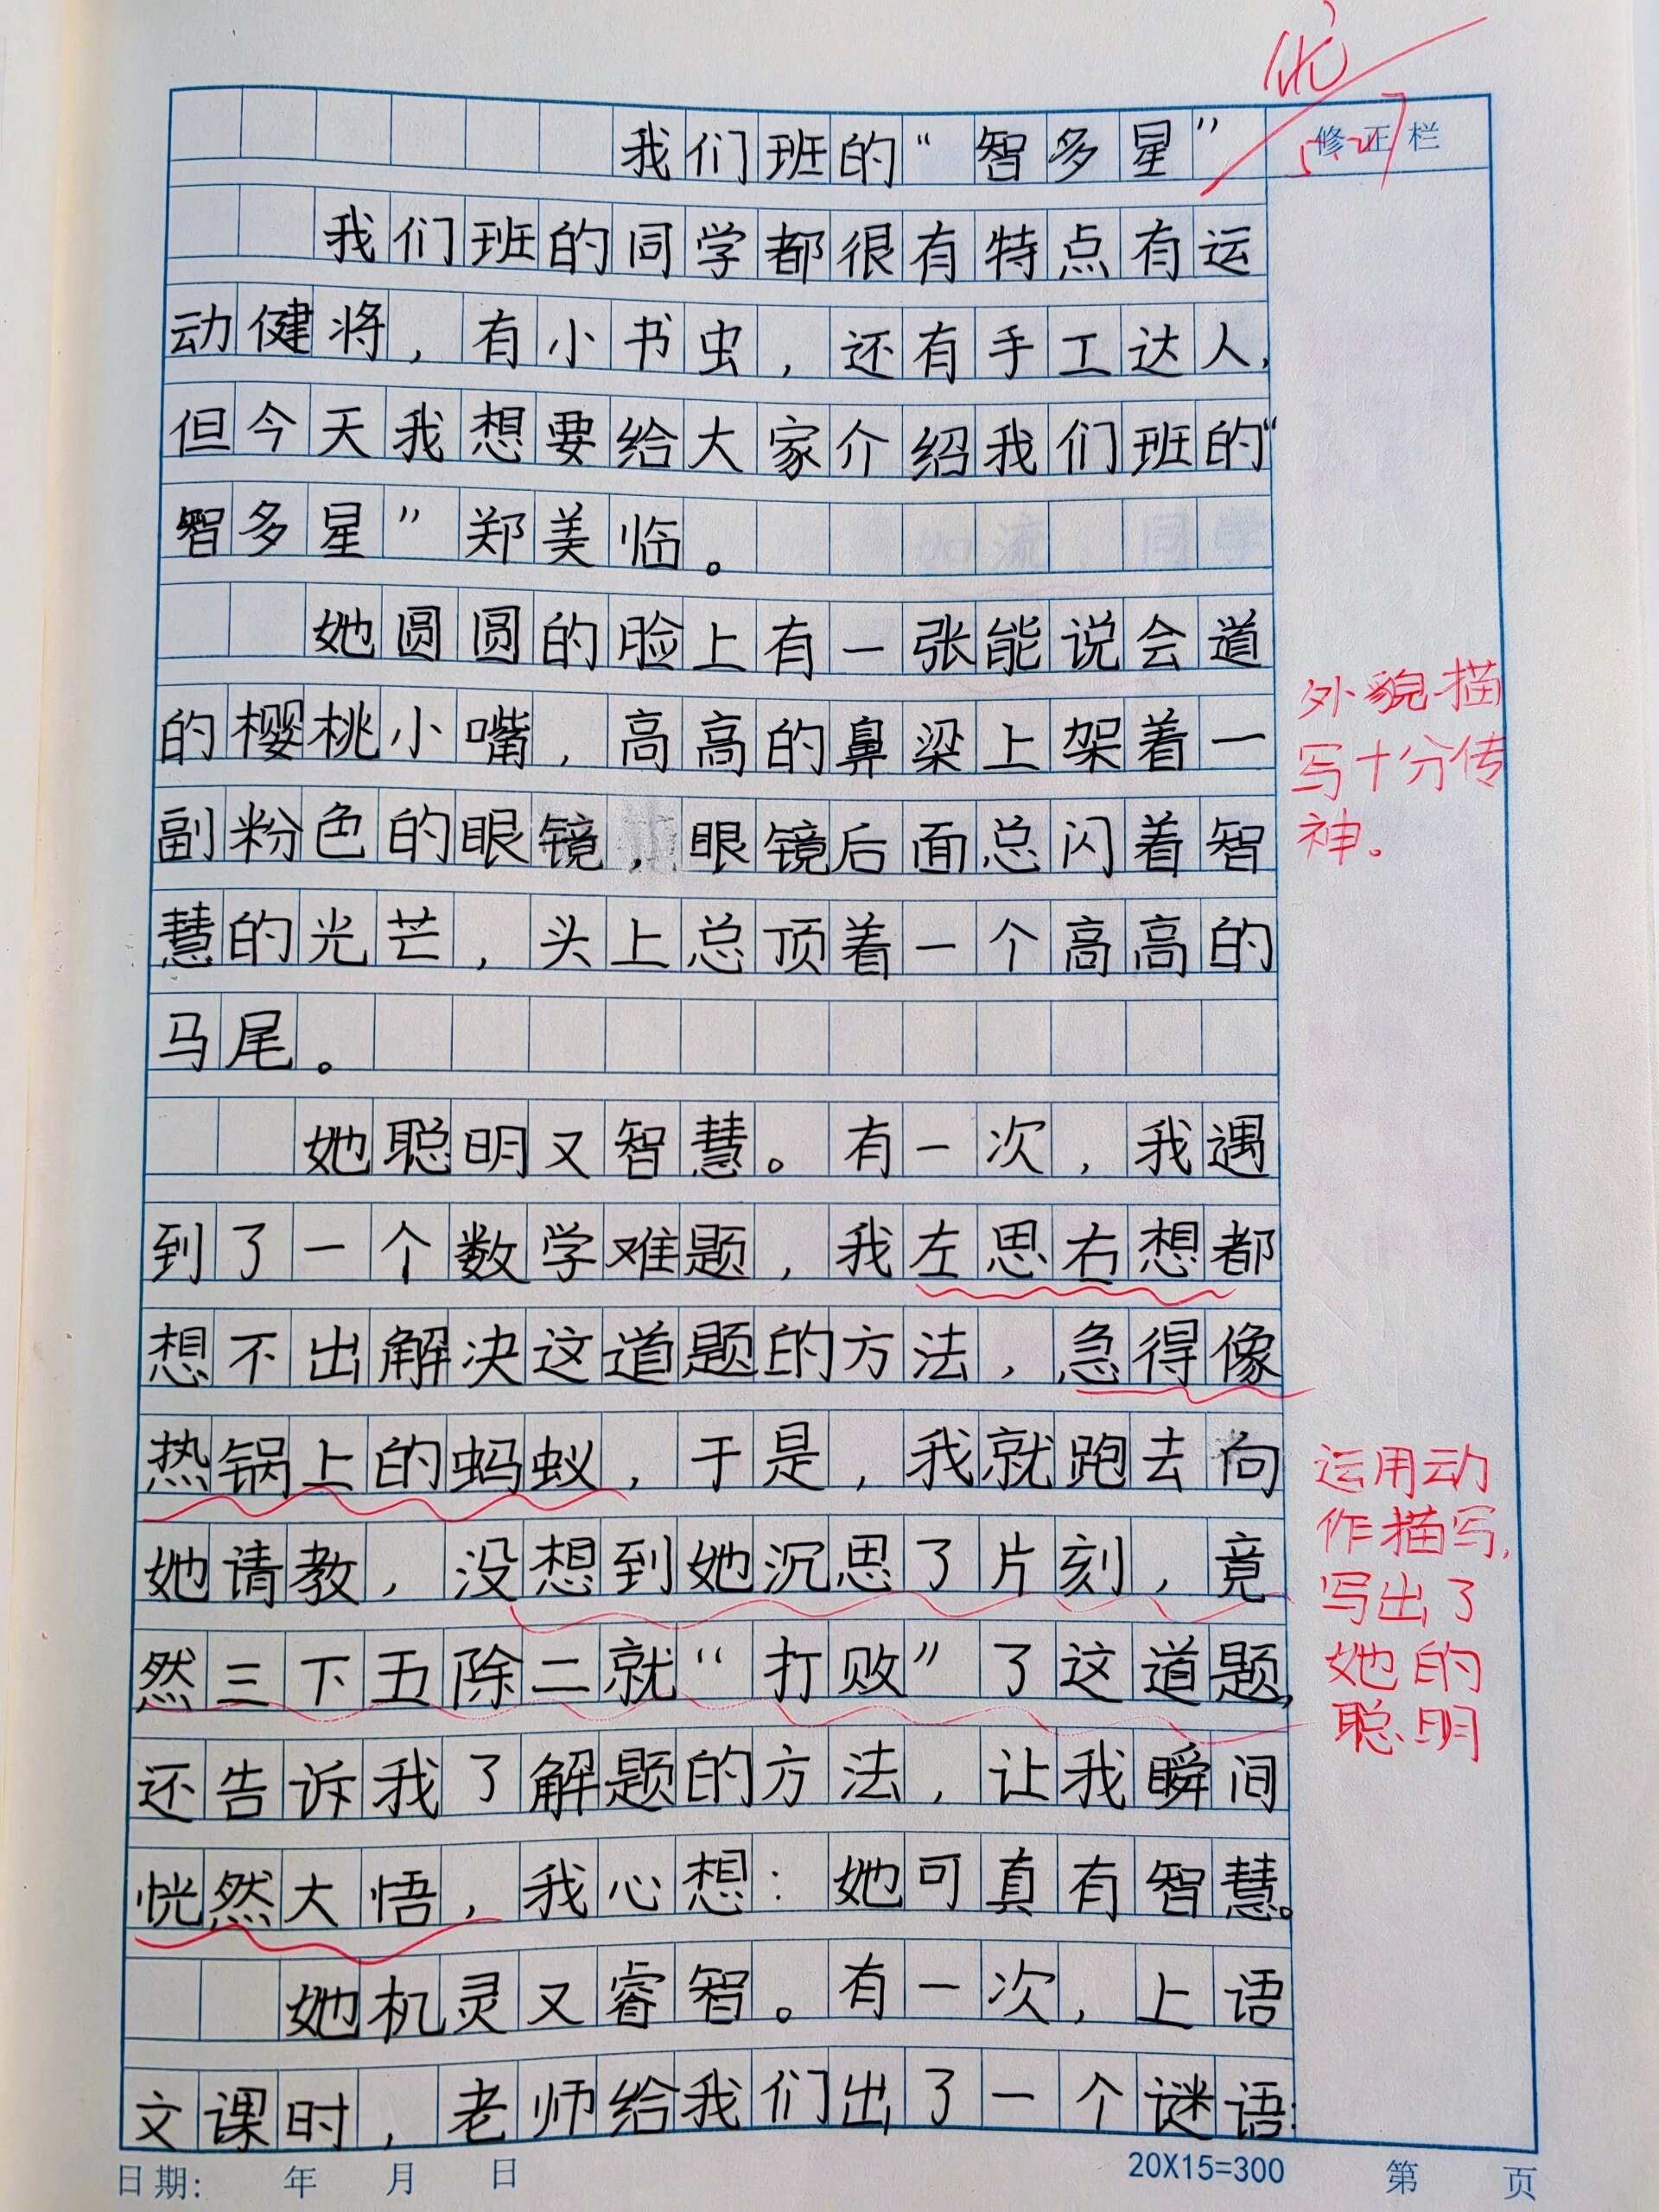 优
我们班的“智多星”
修正栏
5.27
我们班的同学都很有特点有运
动健将，有小书虫，还有手工达人，
但今天我想要给大家介绍我们班的“
智多星”郑美临。
她圆圆的脸上有一张能说会道
的樱桃小嘴，高高的鼻梁上架着一
副粉色的眼镜，眼镜后面总闪着智
慧的光芒，头上总顶着一个高高的
马尾。
外貌描
写十分传
神。
她聪明又智慧。有一次，我遇
到了一个数学难题，我左思右想都
想不出解决这道题的方法，急得像
热锅上的蚂蚁，于是，我就跑去向
她请教，没想到她沉思了片刻，竟
然三下五除二就“打败”了这道题，
还告诉我了解题的方法，让我瞬间
恍然大悟，我心想：她可真有智慧。
运用动
作描写，
写出了
她的
聪明
她机灵又睿智。有一次，上语
文课时，老师给我们出了一个谜语：
日期： 年 月 日 20X15=300 第 页